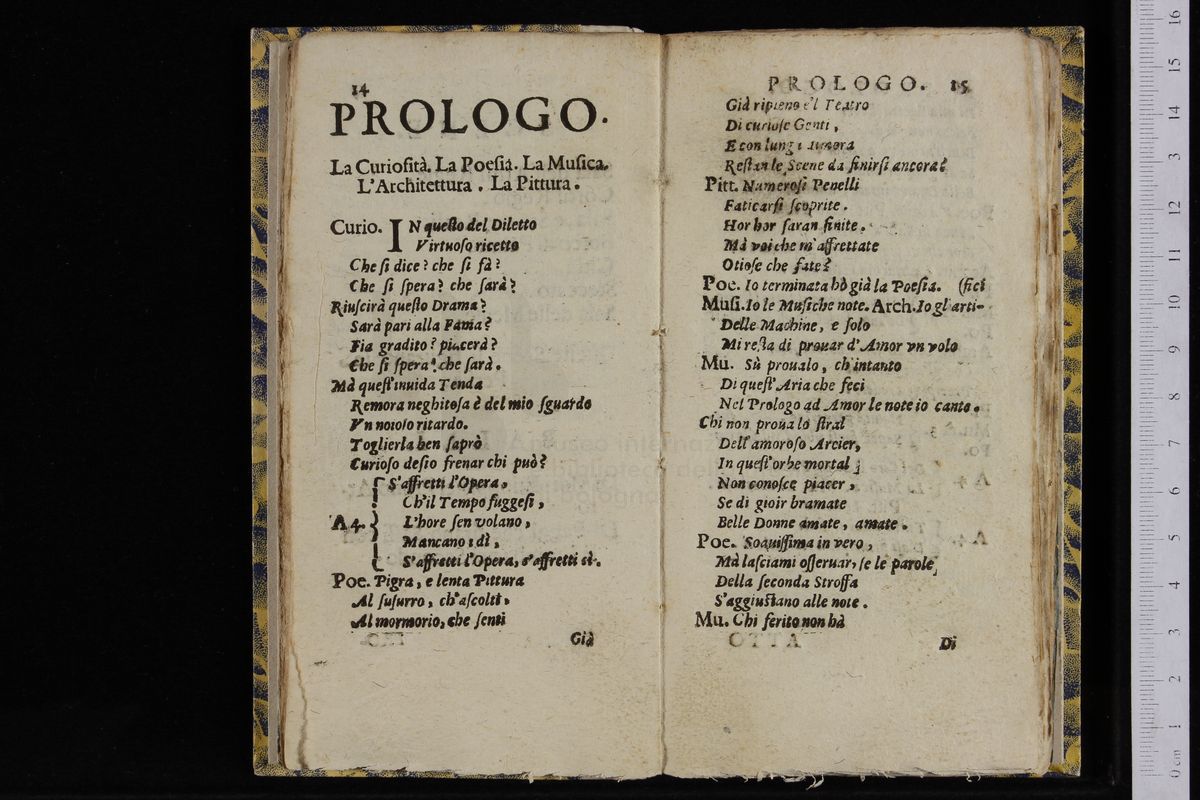 14
PROLOGO.
La Curioſità. La Poeſia. La Muſica.
L'Architettura. La Pittura.
Curio. IN queſto del Diletto
Virtuoſo ricetto
Che ſi dice? che ſi fà?
Che ſi ſpera? che ſarà?
Riuſcirà queſto Drama?
Sarà pari alla Fama?
Fia gradito? piacerà?
Che ſi ſpera? che ſarà.
Mà queſt'inuida Tenda
Remora neghitoſa è del mio ſguardo
Vn noioſo ritardo.
Toglierla ben ſaprò
Curioſo deſio frenar chi può?
S'affretti l'Opera,
Ch'il Tempo fuggeſi,
A 4. L'hore ſen volano,
Mancano i dì,
S'affretti l'Opera, s'affretti sì.
Poe. Pigra, e lenta Pittura
Al ſuſurro, ch'aſcolti,
Al mormorio, che ſenti
Già
PROLOGO. 15
Già ripieno è'l Teatro
Di curioſe Genti,
E con lung
Reſtan le Scene da finirſi ancora?
Pitt. Numeroſi Penelli
Faticarſi ſcoprite.
Hor hor ſaran finite.
Mà voi che m'affrettate
Otioſe che fate?
Poe. Io terminata hò già la Poeſia. (fici
Muſi. Io le Muſiche note. Arch. Io gl'arti-
Delle Machine, e ſolo
Mi reſta di prouar d'Amor vn volo
Mu. Sù proualo, ch'intanto
Di queſt'Aria che feci
Nel Prologo ad Amor le note io canto.
Chi non proua lo ſtral
Dell'amoroſo Arcier,
In queſt'orbe mortal
Non conoſce piacer,
Se di gioir bramate
Belle Donne amate, amate.
Poe. Soauiſſima in vero,
Mà laſciami oſſeruar, ſe le parole
Della ſeconda Stroffa
S'aggiuſtano alle note.
Mu. Chi ferito non hà
Di